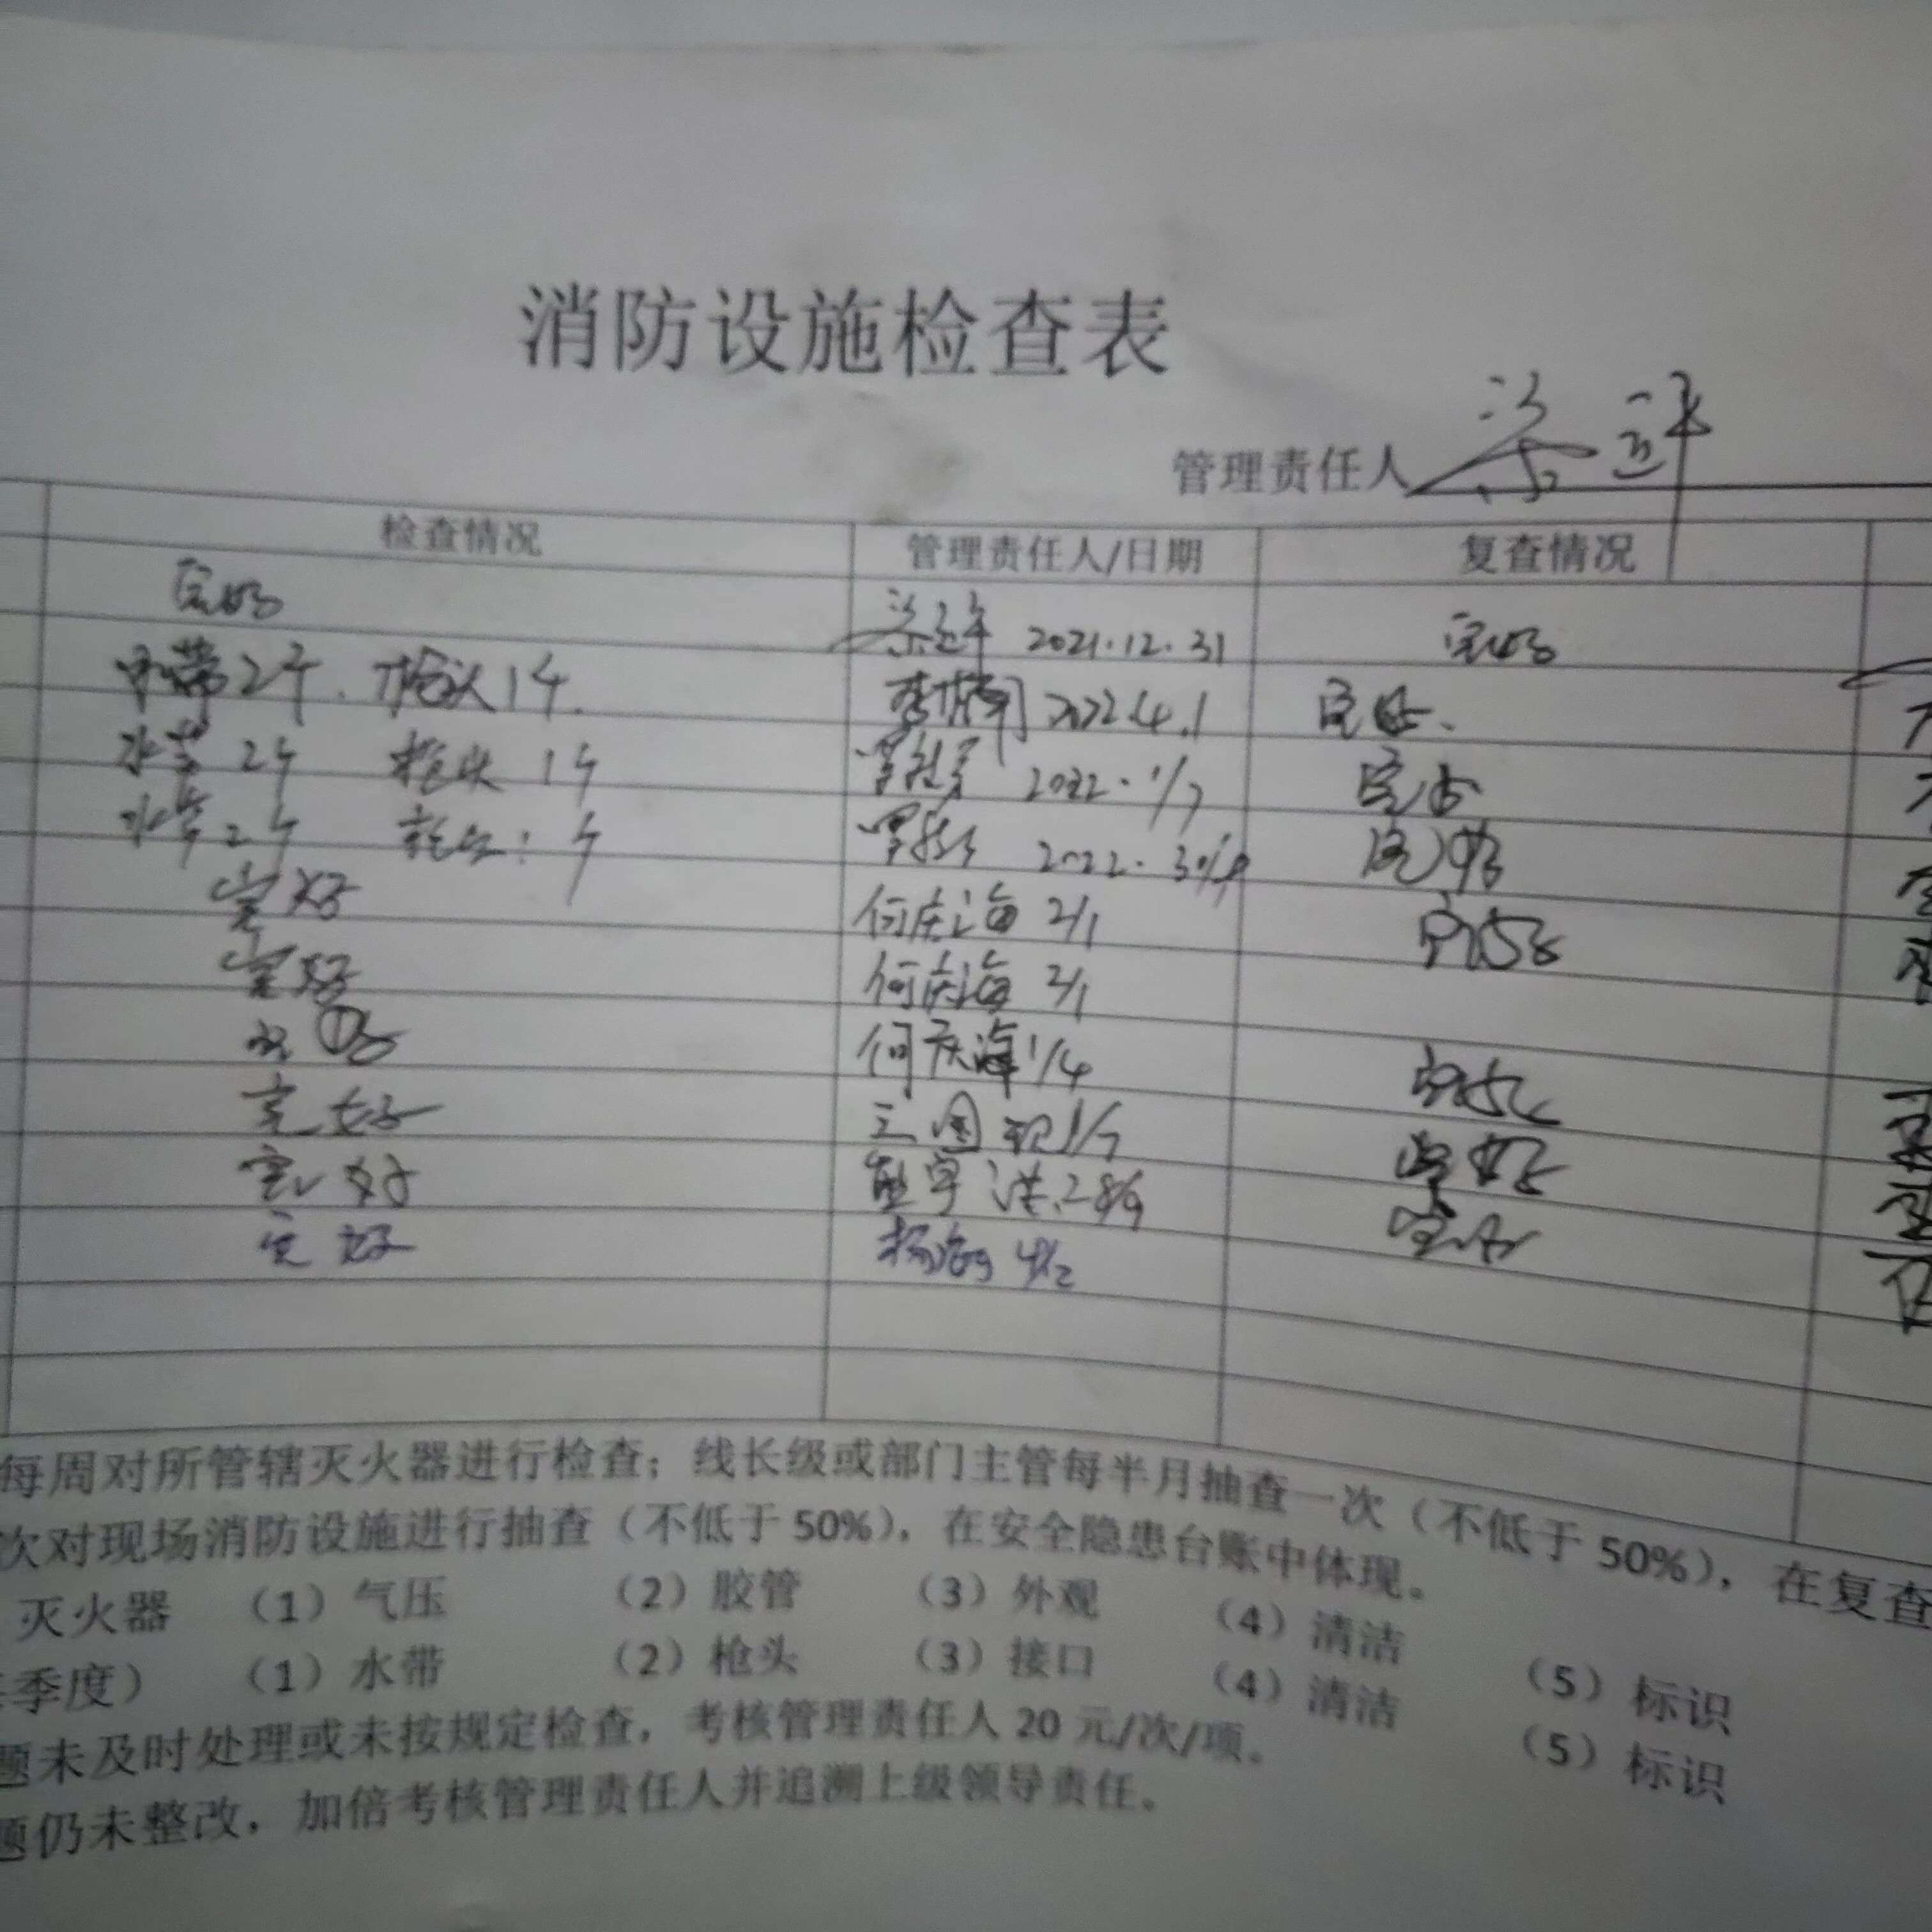 消防设施检查表
管理责任人
检查情况 管理责任人/日期 复查情况
完好 2021.12.31 完好
水带2个、枪头1个. 2022.4.1 完好.
水带2个 枪头1个 2022.1/7 完好
水带2个 2022. 完好
完好 何庆海 2/1 完好
完好 何庆海 2/1
何庆海 1/4 完好
完好 1/7 完好
完好 28/9 完好
完好 4/12
每周对所管辖灭火器进行检查；线长级或部门主管每半月抽查一次（不低于50%），在复查
次对现场消防设施进行抽查（不低于50%），在安全隐患台账中体现。
灭火器 （1）气压 （2）胶管 （3）外观 （4）清洁 （5）标识
季度） （1）水带 （2）枪头 （3）接口 （4）清洁 （5）标识
题未及时处理或未按规定检查，考核管理责任人20元/次/项。
题仍未整改，加倍考核管理责任人并追溯上级领导责任。